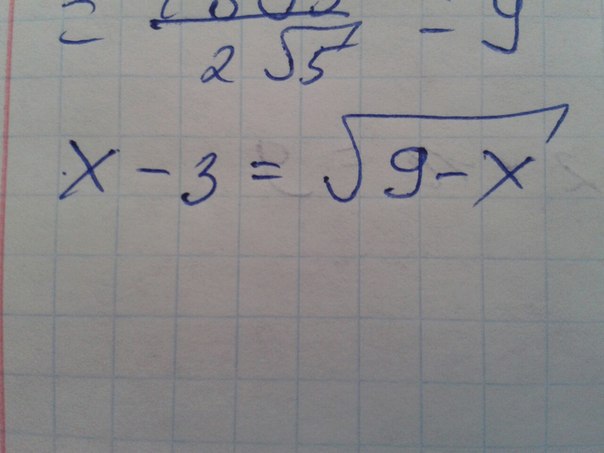 = / 2√5 - 9
x - 3 = √(9 - x)